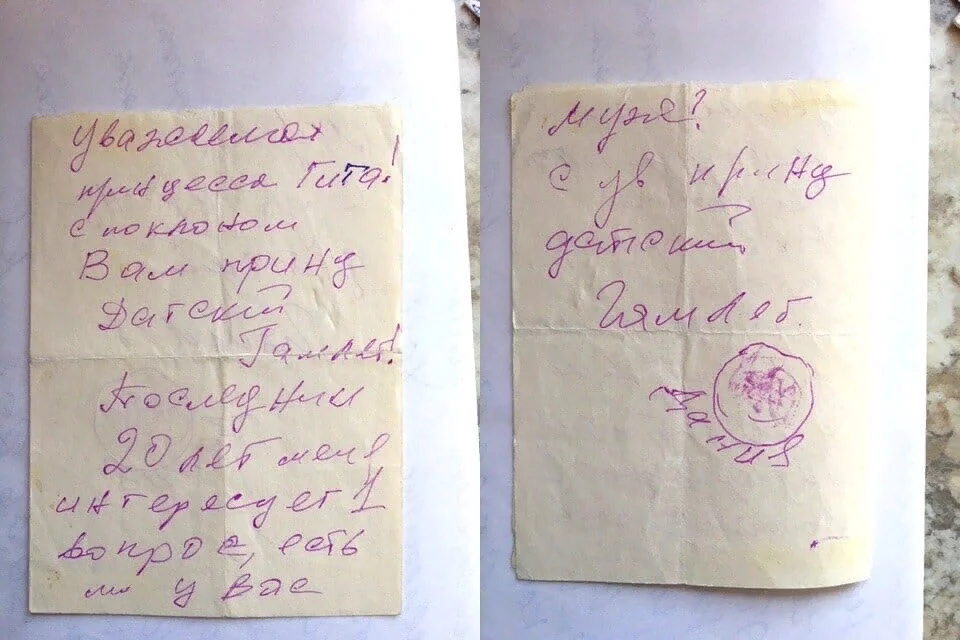 Уважаемая
принцесса Гита!
с поклоном
Вам принц
Датский
Гамлет!
Последнии
20 лет меня
интересует 1
вопрос, есть
ли у вас
мужя?
с ув принц
датский
Гямлет.
Дания